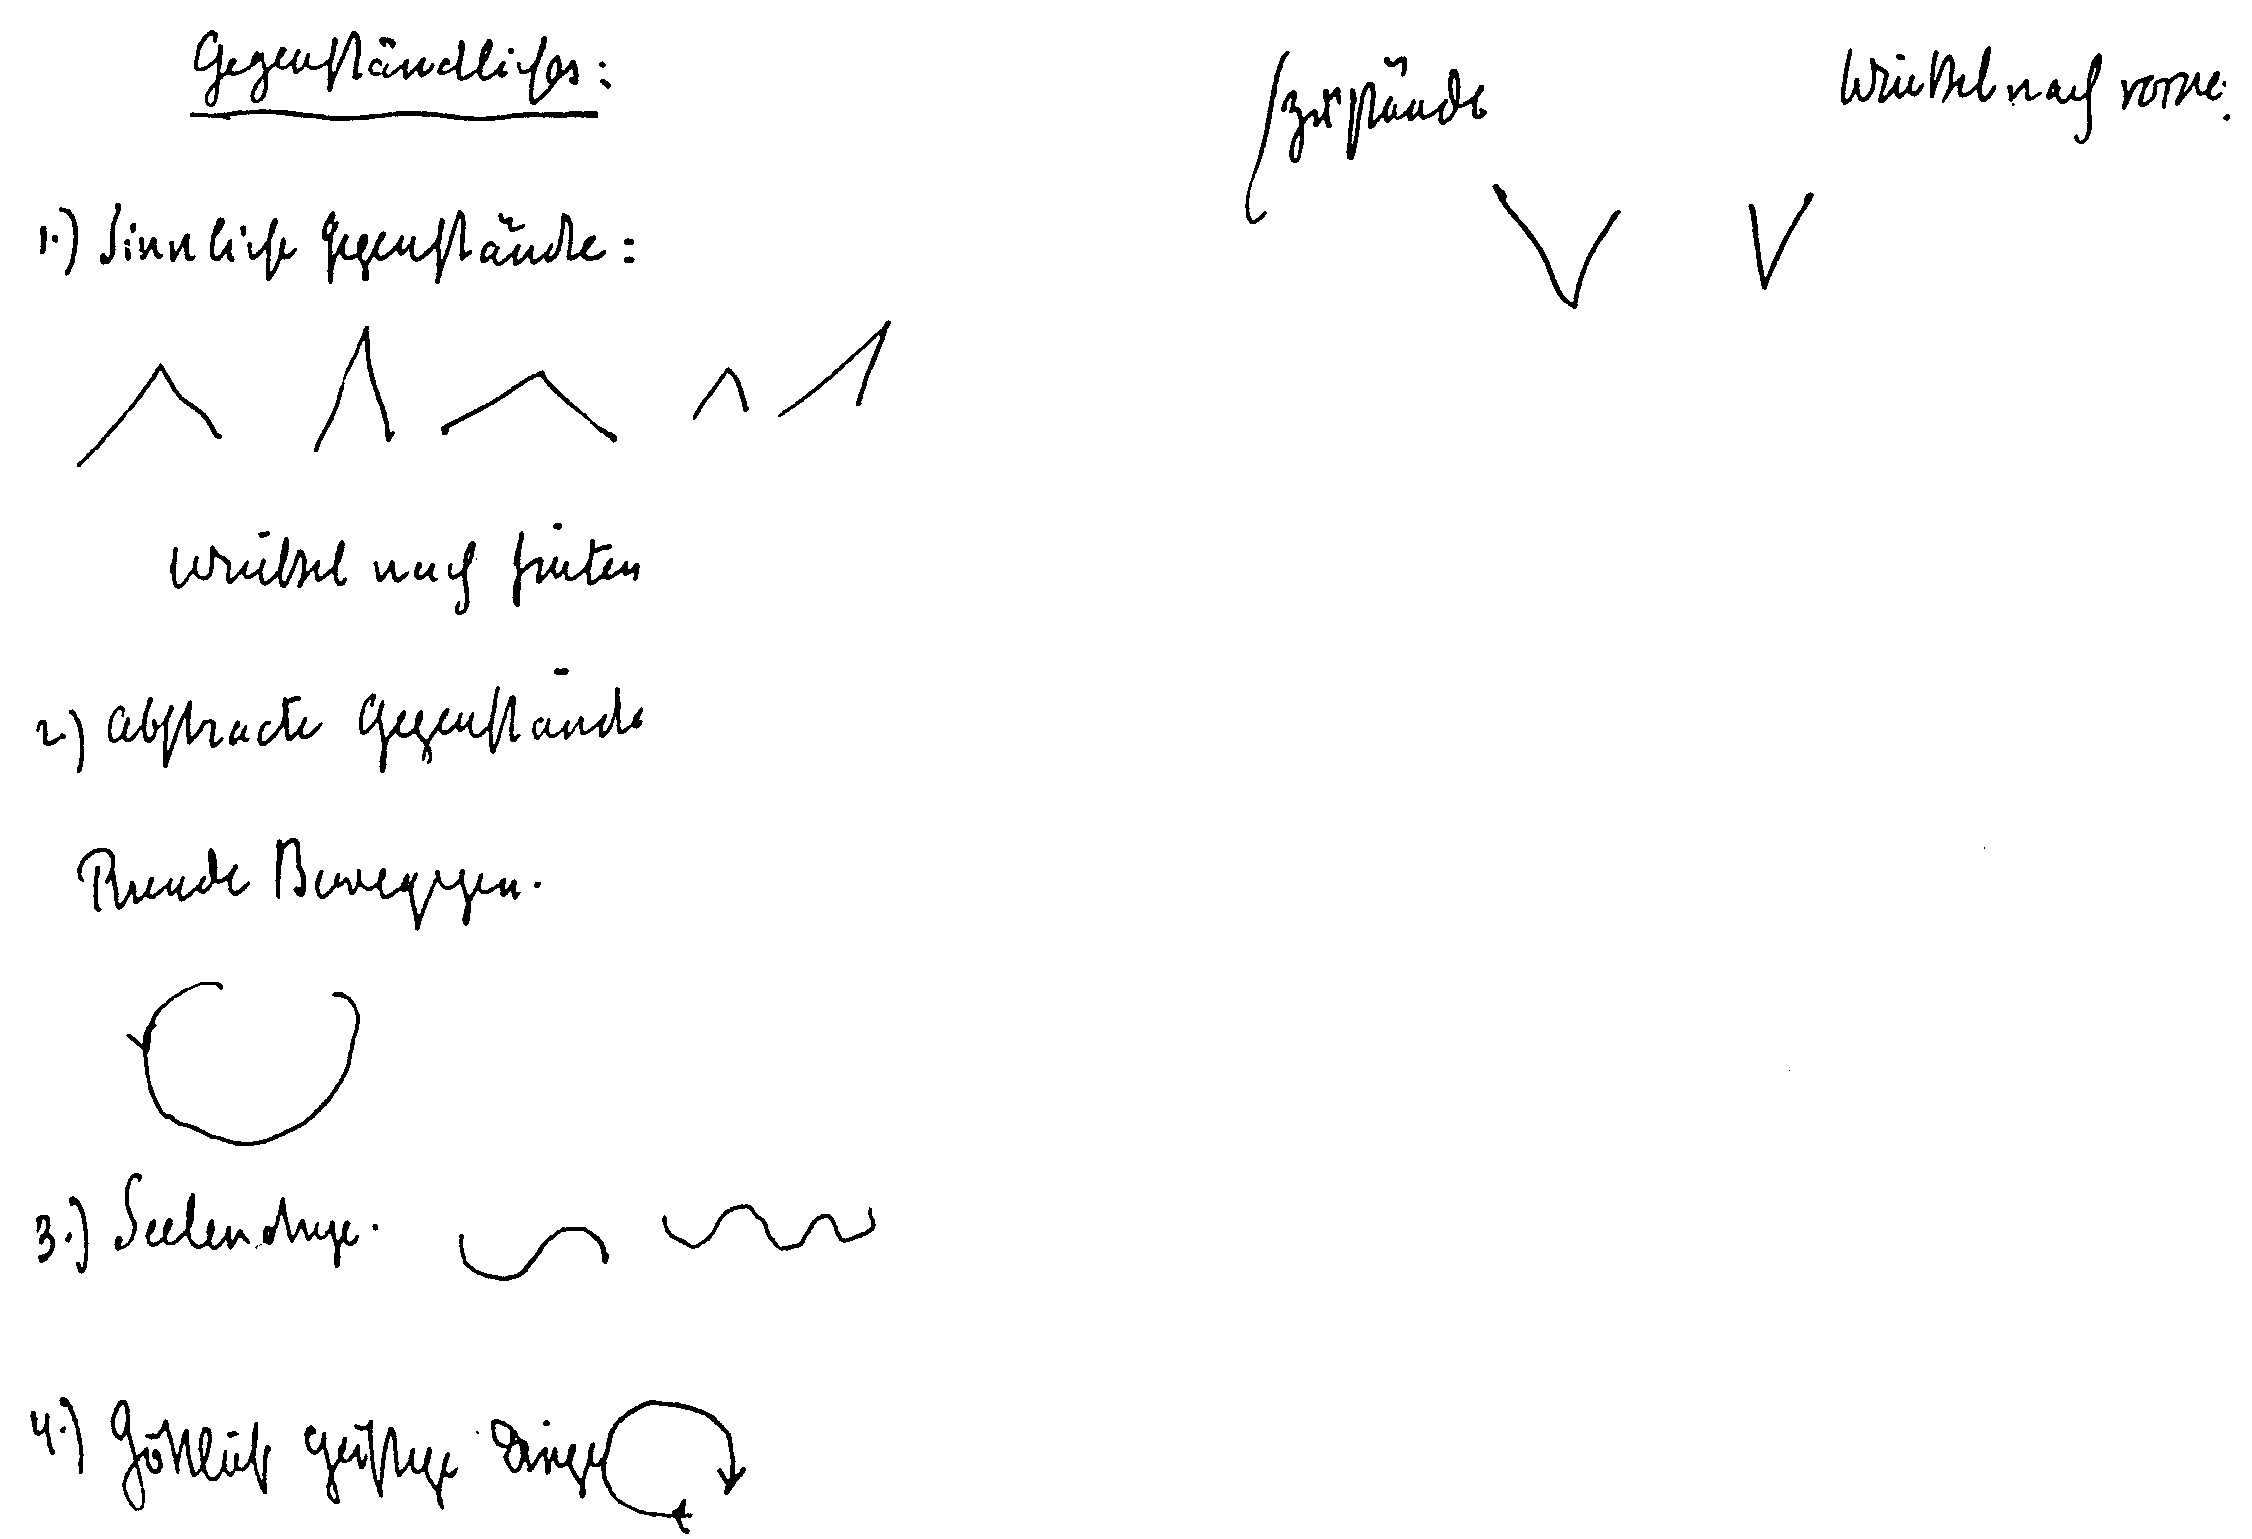 Gegenständliches:
1.) Sinnliche Gegenstände:
Winkel nach hinten
2.) Abstracte Gegenstände
Runde Beweggen.
3.) Seelendinge.
4.) Göttlich geistige Dinge
Zustände
Winkel nach vorne.